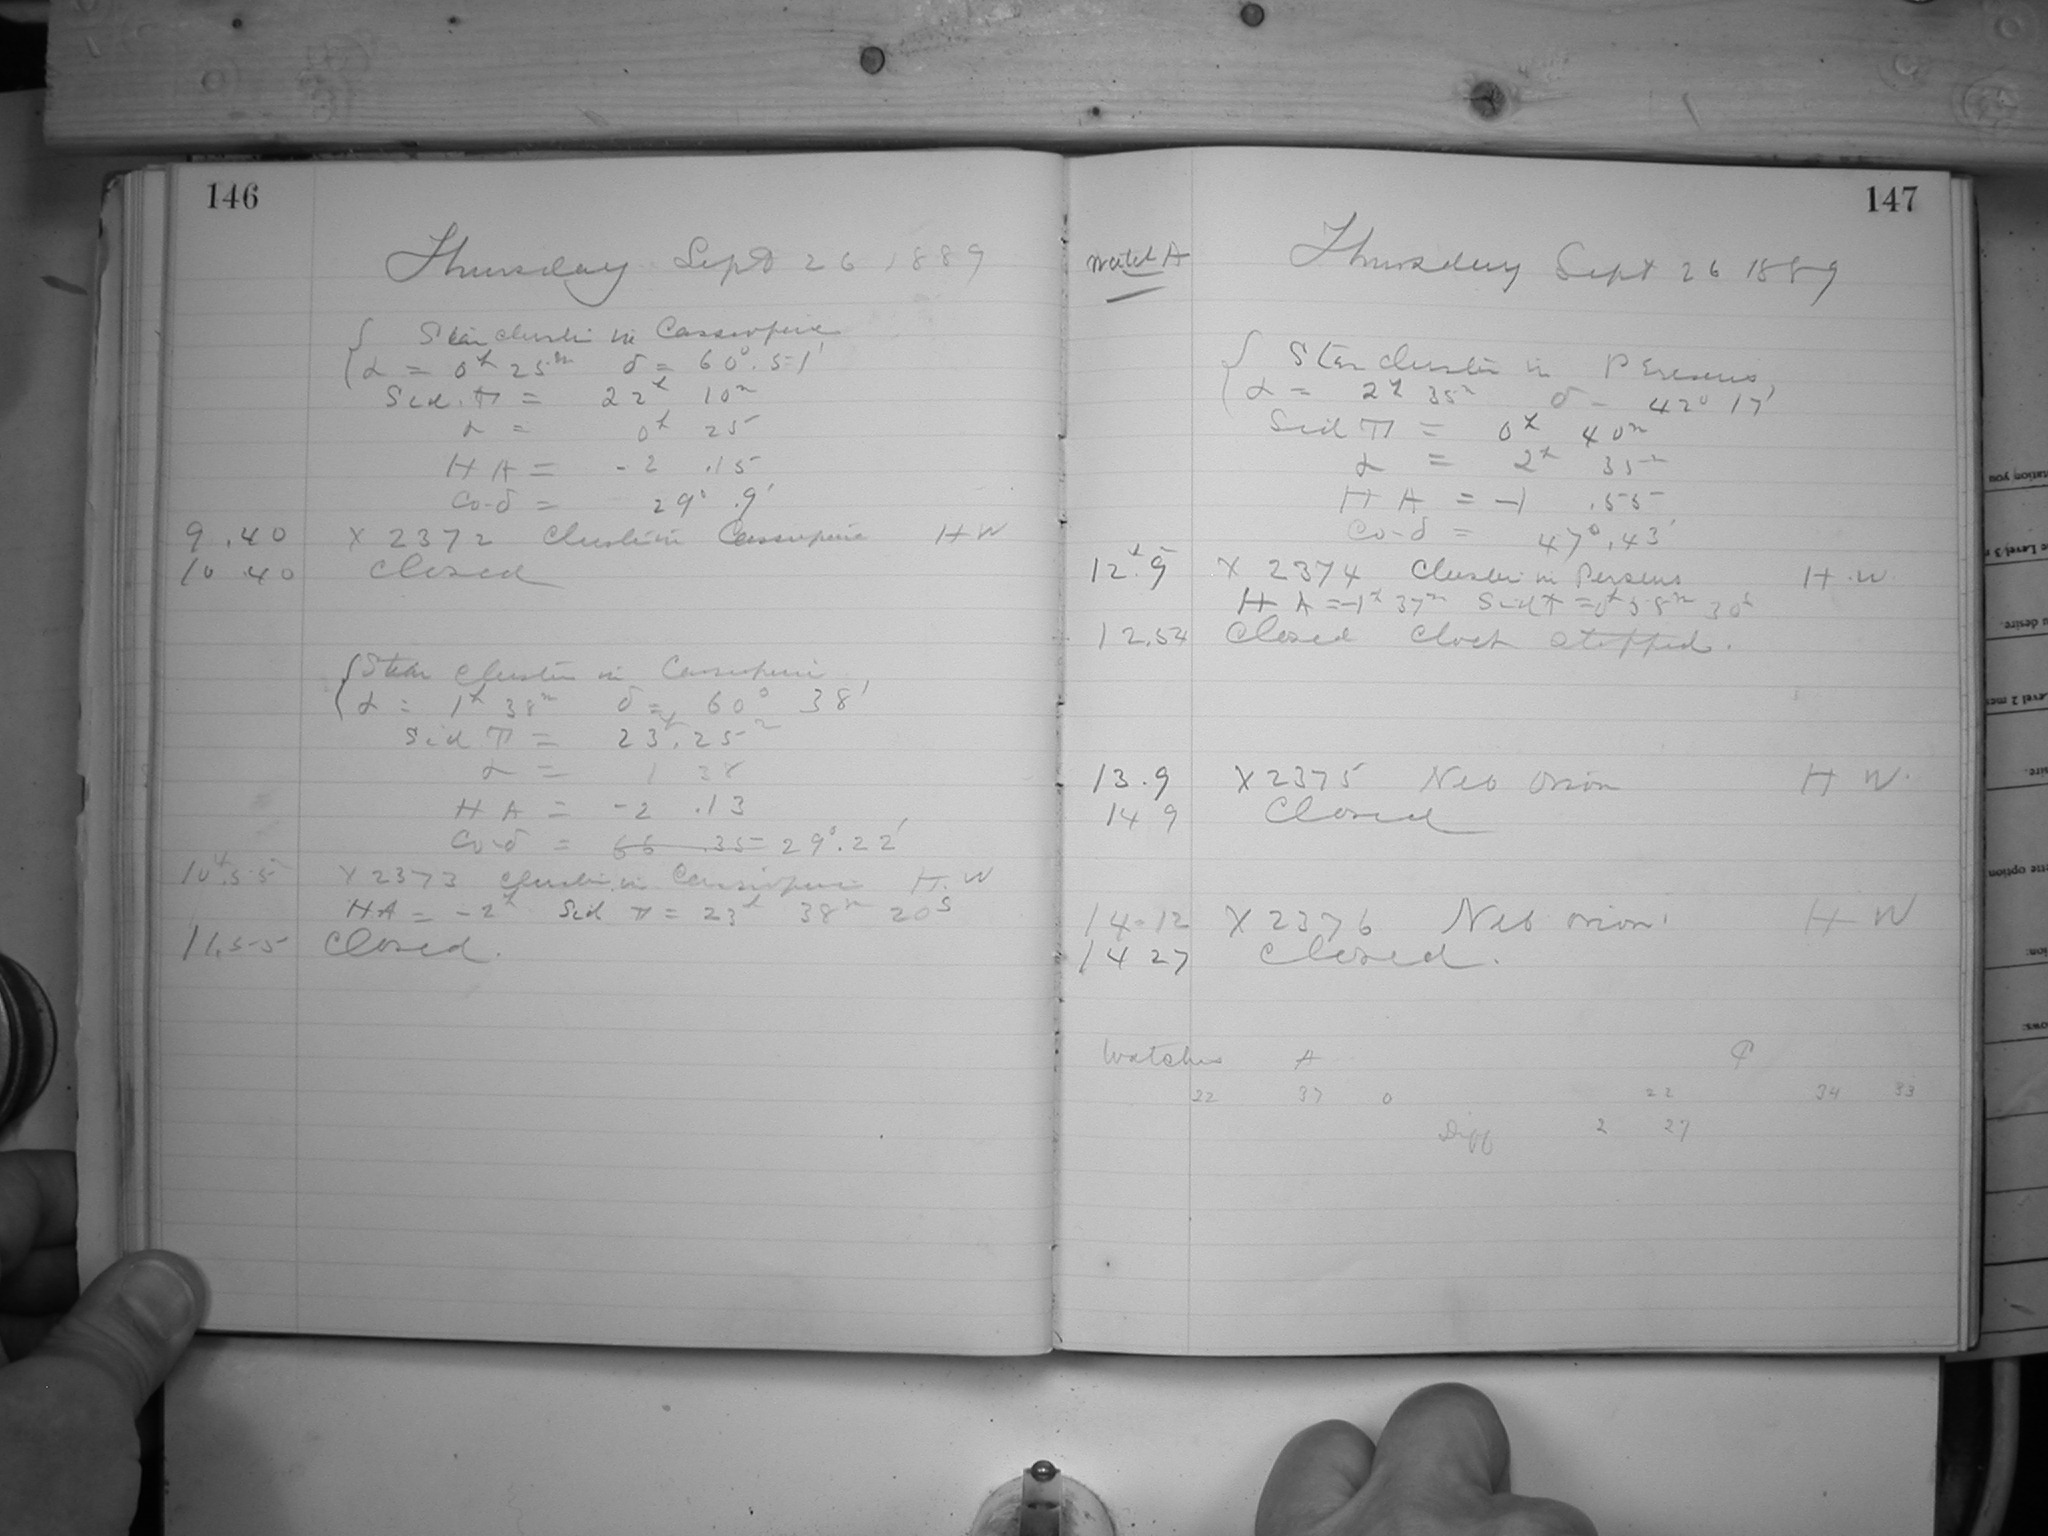 146
Thursday Sept 26 1889
Star cluster in Cassiopeia
α = 0h 25m δ = 60° .51'
Sid. T = 22h 10m
α = 0h 25
HA = -2 .15
Co-δ = 29° .9'
9.40 X 2372 Cluster in Cassiopeia HW
10 40 Closed
Star cluster in Cassiopeia
α = 1h 38m δ = 60° 38'
Sid. T = 23h.25m
α = 1 38
HA = -2 .13
Co-δ = 66 .35 29°.22'
10h.55 X 2373 cluster in Cassiopeia H.W
HA = -2h Sid T = 23h 38m 20s
11.55 Closed.
147
Watch A
Thursday Sept 26 1889
Star cluster in Perseus,
α = 2h 35m δ = 42° 17'
Sid T = 0h 40m
α = 2h 35m
HA = -1 .55
Co-δ = 47°.43'
12h.9 X 2374 Cluster in Perseus H.W.
HA = -1h 37m Sid T = 0h 58m 30s
12.54 Closed Clock stopped.
13.9 X 2375 Neb Orion H W.
14 9 Closed
14-12 X 2376 Neb Orion H W
14 27 Closed.
Watches A P
22 37 0 22 34 33
Diff 2 27